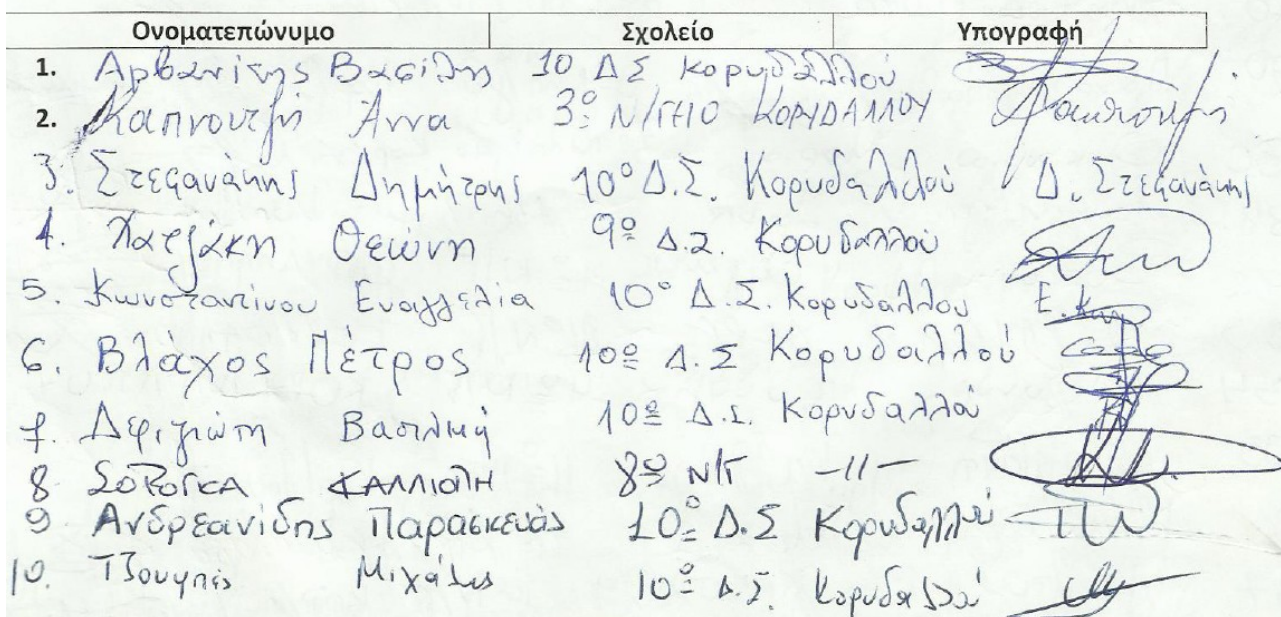 Ονοματεπώνυμο Σχολείο Υπογραφή
1. Αρβανίτης Βασίλης 10 ΔΣ Κορυδαλλού
2. Καπνουτζή Άννα 3º Ν/ΓΕΙΟ ΚΟΡΥΔΑΛΛΟΥ
3. Στεφανάκης Δημήτρης 10º Δ.Σ. Κορυδαλλού Δ. Στεφανάκης
4. Χατζάκη Θεώνη 9º Δ.Σ. Κορυδαλλού
5. Κωνσταντίνου Ευαγγελία 10º Δ.Σ. Κορυδαλλού
6. Βλάχος Πέτρος 10º Δ.Σ Κορυδαλλού
7. Βασιλική 10º Δ.Σ. Κορυδαλλού
8 ΚΑΛΛΙΟΠΗ 8º Ν/Γ -//-
9 Ανδρεανίδης Παρασκευάς 10º Δ.Σ Κορυδαλλού
10. Μιχάλης 10º Δ.Σ. Κορυδαλλού